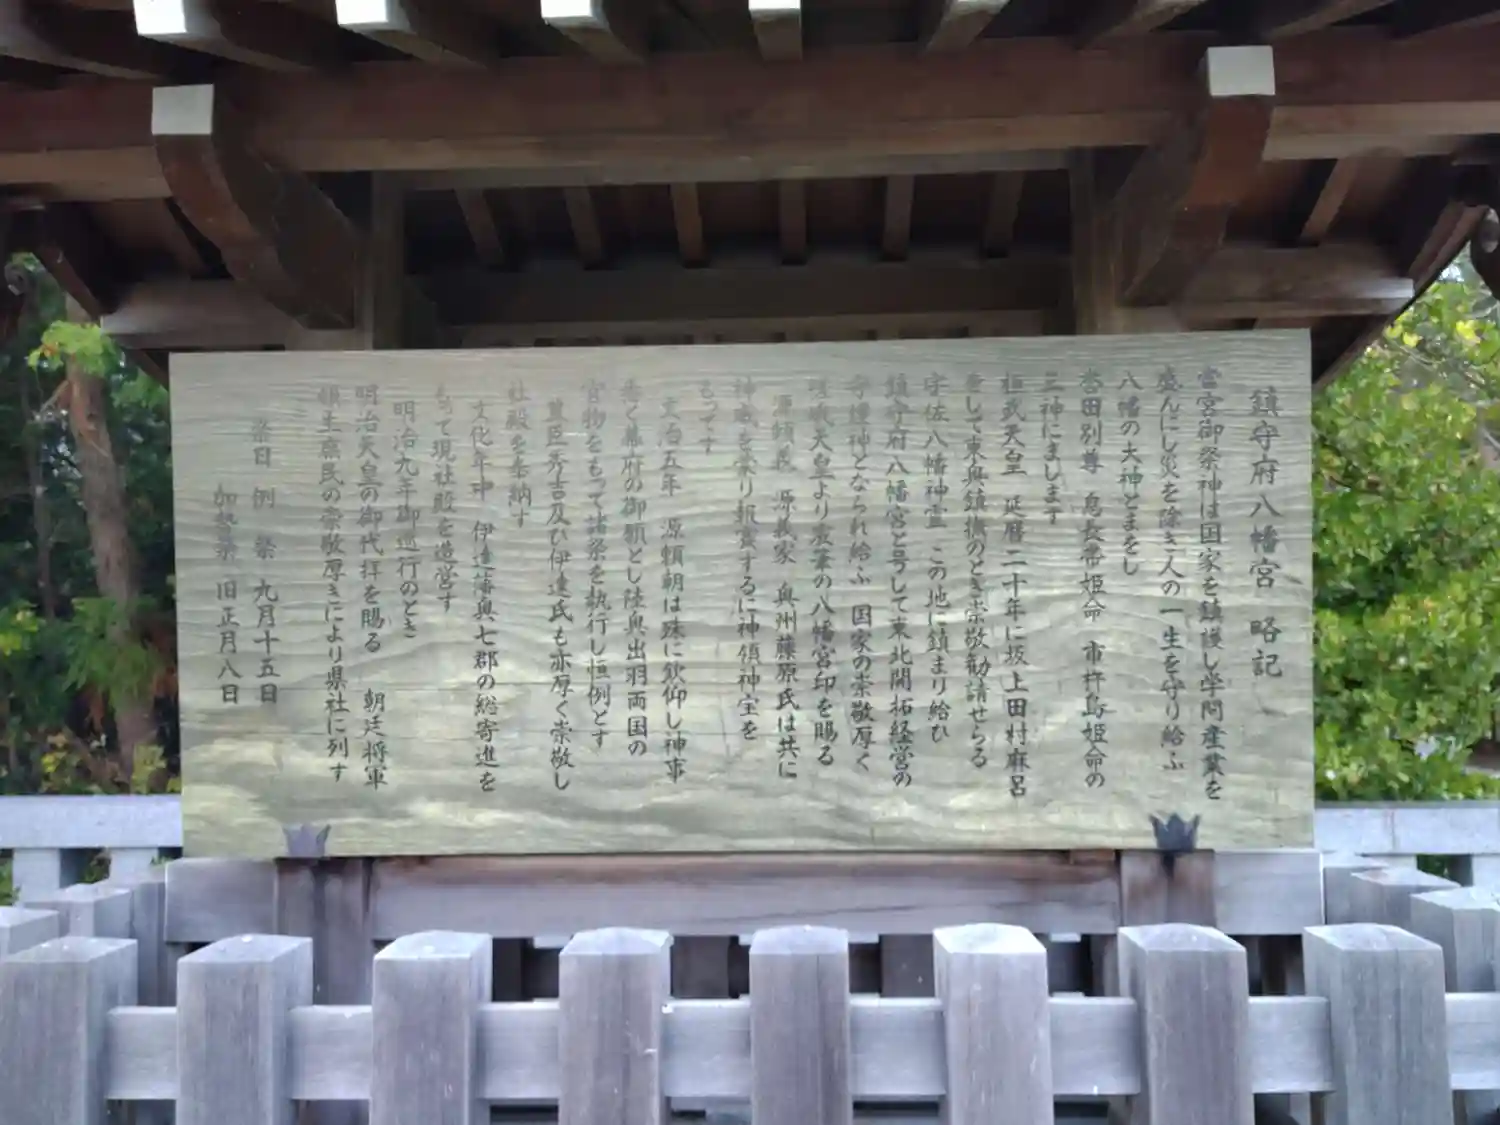 鎮守府八幡宮 略記
當宮御祭神は国家を鎮護し学問産業を
盛んにし災を除き人の一生を守り給ふ
八幡の大神とまをし
誉田別尊 息長帯姫命 市杵島姫命の
三神にまします
桓武天皇 延暦二十年に坂上田村麻呂
をして東奥鎮撫のとき崇敬勧請せらる
宇佐八幡神霊 この地に鎮まり給ひ
鎮守府八幡宮と号して東北開拓経営の
守護神となられ給ふ 国家の崇敬厚く
嵯峨天皇より宸筆の八幡宮印を賜る
源頼義 源義家 奥州藤原氏は共に
神威を崇り報賽するに神領神宝を
もつてす
文治五年 源頼朝は殊に欽仰し神事
悉く幕府の御願とし陸奥出羽両国の
官物をもつて諸祭を執行し恒例とす
豊臣秀吉及ひ伊達氏も亦厚く崇敬し
社殿を奉納す
文化年中 伊達藩奥七郡の総寄進を
もつて現社殿を造営す
明治九年御巡行のとき
明治天皇の御代拝を賜る 朝廷将軍
領主庶民の崇敬厚きにより県社に列す
祭日 例祭 九月十五日
加勢祭 旧正月八日